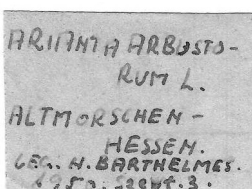 ARIANTA ARBUSTO-
RUM L.
ALTMORSCHEN -
HESSEN.
LEG. H. BARTHELMES.
1950.